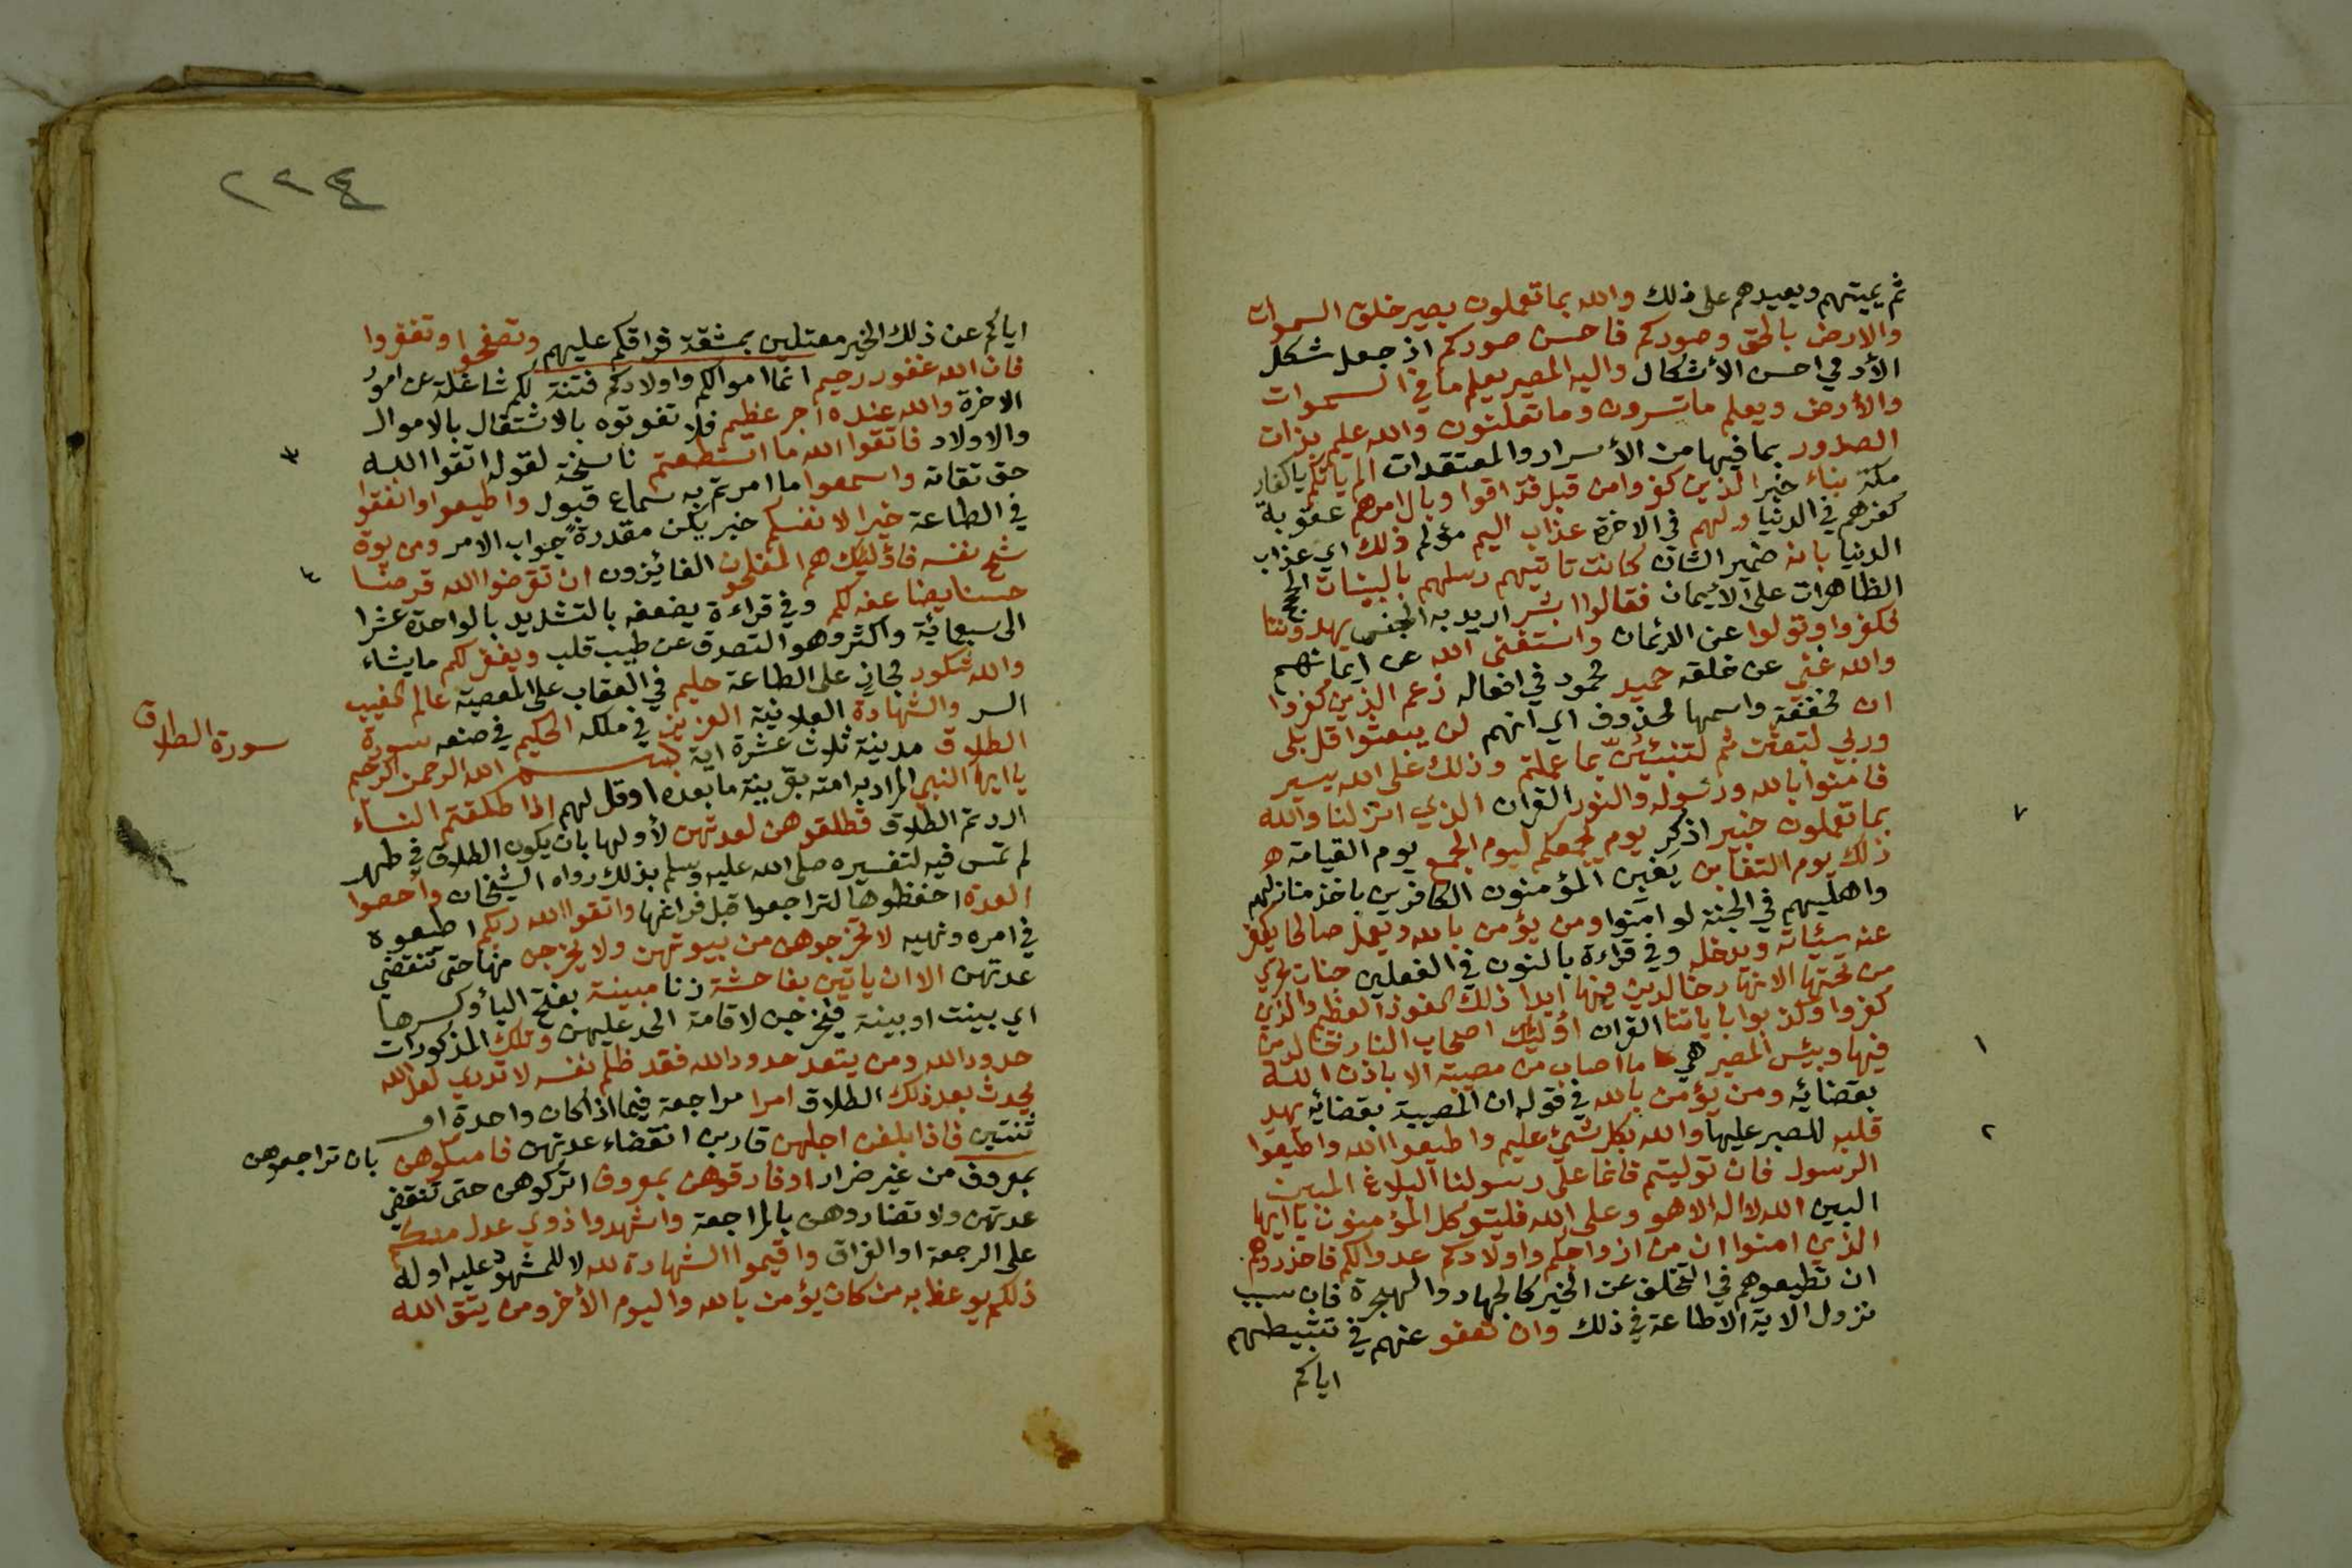 ثم يميتهم ويعيدهم على ذلك والله بما تعملون بصير خلق السموات
والارض بالحق وصوركم فاحسن صوركم اذ جعل شكل
الآدمي احسن الأشكال واليه المصير يعلم ما في السموات
والأرض ويعلم ما تسرون وما تعلنون والله عليم بذات
الصدور بما فيها من الأسرار والمعتقدات الم ياتكم يا كفار
مكة نباء خبر الذين كفروا من قبل فذاقوا وبال امرهم عقوبة
كفرهم في الدنيا ولهم في الاخرة عذاب اليم مؤلم ذلك اي عذاب
الدنيا بانه ضمير الشان كانت تاتيهم رسلهم بالبينات الحجج
الظاهرات على الايمان فقالوا ابشر اريد به الجنس يهدوننا
فكفروا وتولوا عن الايمان واستغنى الله عن ايمانهم
والله غني عن خلقه حميد محمود في افعاله زعم الذين كفروا
ان مخففة واسمها محذوف اي انهم لن يبعثوا قل بلى
وربي لتبعثن ثم لتنبئن بما عملتم وذلك على الله يسير
فامنوا بالله ورسوله والنور القران الذي انزلنا والله
بما تعملون خبير اذكر يوم يجمعكم ليوم الجمع يوم القيامة
ذلك يوم التغابن يغبن المؤمنون الكافرين باخذ منازلهم
واهليهم في الجنة لو امنوا ومن يؤمن بالله ويعمل صالحا يكفر
عنه سيئاته ويدخله وفي قراءة بالنون في الفعلين جنات تجري
من تحتها الانهار خالدين فيها ابدا ذلك الفوز العظيم والذين
كفروا وكذبوا باياتنا القران أولئك اصحاب النار خالدين
فيها وبئس المصير هي ما اصاب من مصيبة الا باذن الله
بقضائه ومن يؤمن بالله في قوله ان المصيبة بقضائه يهد
قلبه للصبر عليها والله بكل شيئ عليم واطيعوا الله واطيعوا
الرسول فان توليتم فانما على رسولنا البلاغ المبين
البين الله لا اله الا هو وعلى الله فليتوكل المؤمنون يا ايها
الذين امنوا ان من ازواجكم واولادكم عدوا لكم فاحذروهم
ان تطيعوهم في التخلف عن الخير كالجهاد والهجرة فان سبب
نزول الاية الاطاعة في ذلك وان تعفو عنهم في تثبيطهم
اياكم
٢٢٤
اياكم عن ذلك الخير معتلين بمشقة فراقكم عليهم وتصفحوا وتغفروا
فان الله غفور رحيم انما اموالكم واولادكم فتنة لكم شاغلة عن امور
الاخرة والله عنده اجر عظيم فلا تفوتوه بالاشتغال بالاموال
والاولاد فاتقوا الله ما استطعتم ناسخة لقوله اتقوا الله
حق تقاته واسمعوا ما امرتم به سماع قبول واطيعوا وانفقوا
في الطاعة خيرا لانفسكم خبر يكن مقدرة جواب الامر ومن يوق
شح نفسه فأولئك هم المفلحون الفائزون ان تقرضوا الله قرضا
حسنا يضاعفه لكم وفي قراءة يضعفه بالتشديد بالواحدة عشرا
الى سبعمائة واكثر وهو التصدق عن طيب قلب ويغفر لكم ما يشاء
والله شكور مجاز على الطاعة حليم في العقاب على المعصية عالم الغيب
السر والشهادة العلانية العزيز في ملكه الحكيم في صنعه سورة
الطلاق مدينة ثلاث عشرة اية بسم الله الرحمن الرحيم
سورة الطلاق
يا ايها النبي المراد به امته بقرينة ما بعده او قل لهم اذا طلقتم النساء
اردتم الطلاق فطلقوهن لعدتهن لأولها بان يكون الطلاق في طهر
لم تمس فيه لتفسيره صلى الله عليه وسلم بذلك رواه الشيخان واحصوا
العدة احفظوها لتراجعوا قبل فراغها واتقوا الله ربكم اطيعوه
في امره ونهيه لا تخرجوهن من بيوتهن ولا يخرجن منها حتى تنقضي
عدتهن الا ان ياتين بفاحشة زنا مبينة بفتح اليا وكسرها
اي بينت او بينة فيخرجن لاقامة الحد عليهن وتلك المذكورات
حدود الله ومن يتعد حدود الله فقد ظلم نفسه لا تدري لعل الله
يحدث بعد ذلك الطلاق امرا مراجعة فيما اذا كان واحدة او
ثنتين فاذا بلغن اجلهن قاربن انقضاء عدتهن فامسكوهن بان تراجعوهن
بمعروف من غير ضرار او فارقوهن بمعروف اتركوهن حتى تنقضي
عدتهن ولا تضاروهن بالمراجعة واشهدوا ذوي عدل منكم
على الرجعة او الفراق واقيموا الشهادة لله لا للمشهود عليه اوله
ذلكم يوعظ به من كان يؤمن بالله واليوم الأخر ومن يتق الله